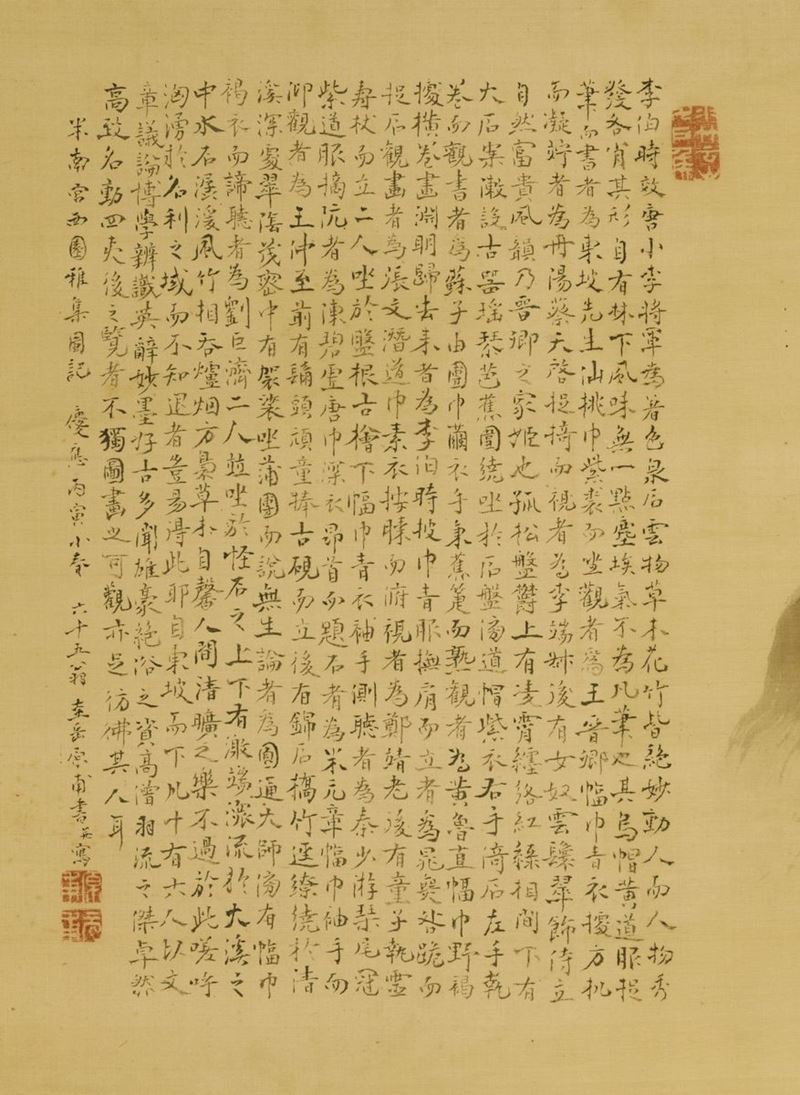 李伯時效唐小李將軍為著色泉石雲物草木花竹皆絕妙動人而人物秀
發各肖其形自有林下風味無一點塵埃氣不為凡筆也其烏帽黃道服捉
筆而書者為東坡先生仙桃巾紫裘而坐觀者為王晉卿幅巾青衣據方机
而凝竚者為丹陽蔡天啓捉椅而視者為李端叔後有女奴雲鬟翠飾侍立
自然富貴風韻乃晉卿之家姬也孤松盤鬱上有凌霄纏絡紅綠相間下有
大石案陳設古器瑤琴芭蕉圍繞坐於石盤傍道帽紫衣右手倚石左手執
卷而觀書者為蘇子由團巾繭衣手秉蕉箑而熟觀者為黃魯直幅巾野褐
據橫卷畫淵明歸去來者為李伯時披巾青服撫肩而立者為晁無咎跪而
捉石觀畫者為張文潛道巾素衣按膝而俯視者為鄭靖老後有童子執靈
壽杖而立二人坐於盤根古檜下幅巾青衣袖手側聽者為秦少游琴尾冠
紫道服摘阮者為陳碧虛唐巾深衣昂首而題石者為米元章幅巾袖手而
仰觀者為王仲至前有鬅頭頑童捧古硯而立後有錦石橋竹逕繚繞於清
溪深處翠陰茂密中有袈裟坐蒲團而說無生論者為圓通大師傍有幅巾
褐衣而諦聽者為劉巨濟二人並坐於怪石之上下有激湍潨流於大溪之
中水石潺湲風竹相吞爐烟方裊草木自馨人間清曠之樂不過於此嗟呼
洶湧於名利之域而不知退者豈易得此耶自東坡而下凡十有六人以文
章議論博學辨識英辭妙墨好古多聞雄豪絕俗之資高僧羽流之傑卓然
高致名動四夷後之覽者不獨圖畫之可觀亦足彷彿其人耳
米南宮西園雅集圖記 慶應丙寅小春 六十五翁 東岳原甫書并寫